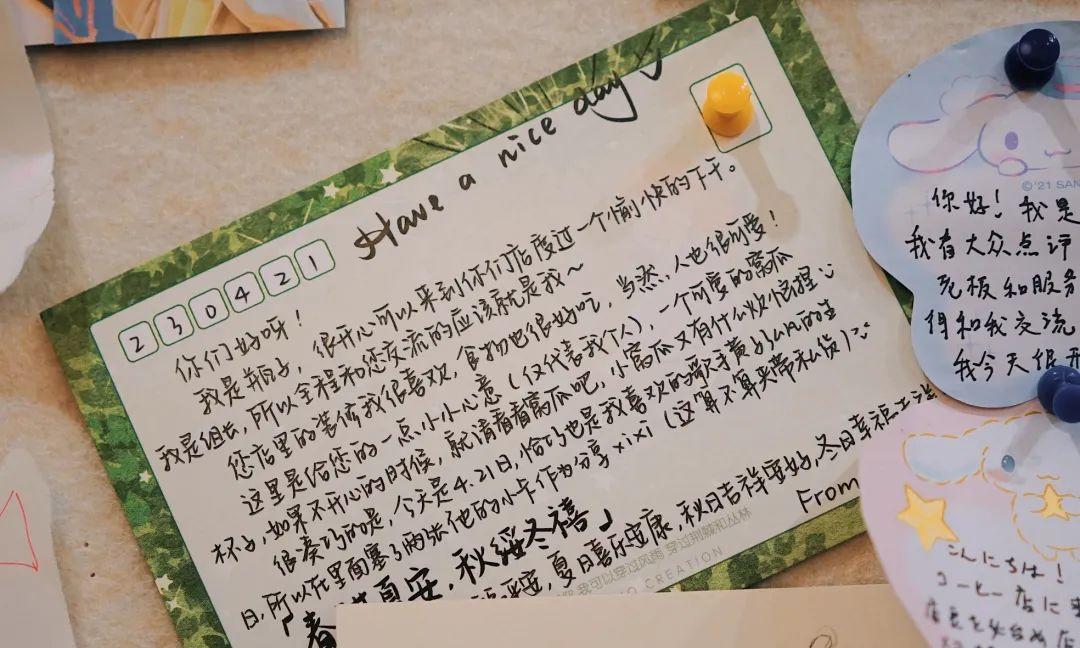 Have a nice day
230421
你们好呀！
我是瓶子，很开心可以来到你们店度过一个愉快的下午。
我是组长，所以全程和您交流的应该就是我～
您店里的装修我很喜欢，食物也很好吃，当然，人也很可爱！
这里是给您的一点小小心意（仅代表我个人），一个可爱的窝瓜
杯子，如果不开心的时候，就请看看窝瓜吧，小窝瓜又有什么坏
很凑巧的是，今天是4.21日，恰巧也是我喜欢的歌手黄的生
日，所以在里面塞了两张他的小卡作为分享xixi（这算不算夹带私货）
「春 夏安，秋绥冬禧」
平安，夏日喜乐安康，秋日吉祥安好，冬日幸福
From
我可以穿过风雨 穿过荆棘和丛林
CREATION
©'21 SAN
你好！我是
我有大众点评
和服务
得和我交流
我今天很开
こんにちは！
コーヒー店に